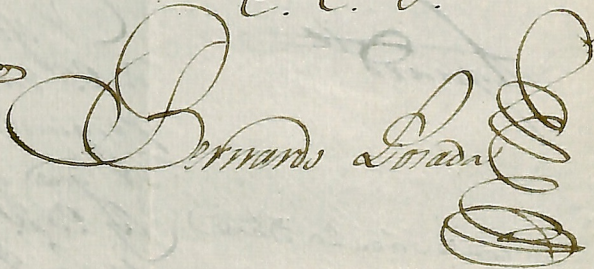 Bernardo Losada